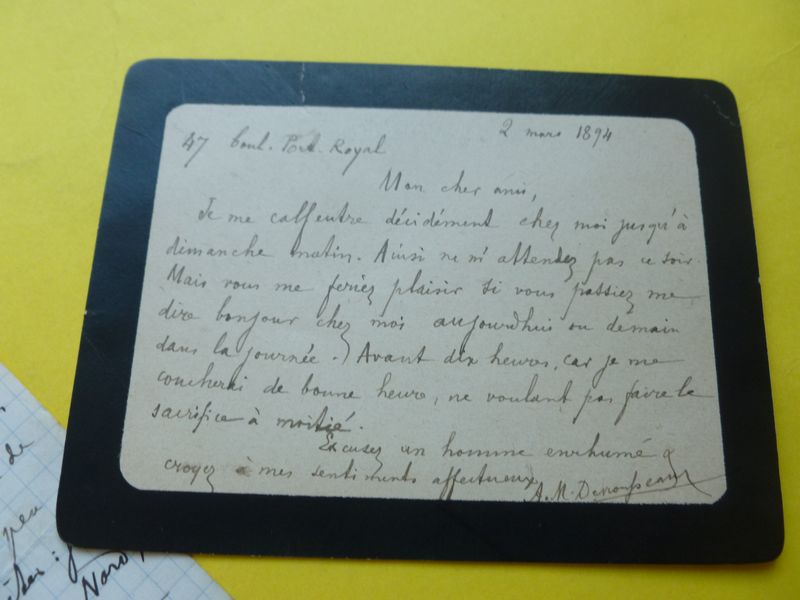 47 boul. Port-Royal
2 mars 1894
Mon cher ami,
Je me calfeutre décidément chez moi jusqu'à
dimanche matin. Ainsi ne m'attendez pas ce soir.
Mais vous me feriez plaisir si vous passiez me
dire bonjour chez moi aujourd'hui ou demain
dans la journée. Avant dix heures, car je me
coucherai de bonne heure, ne voulant pas faire le
sacrifice à moitié.
Excusez un homme enrhumé &
croyez à mes sentiments affectueux
A. M. Desrousseaux
de
peu
Nord,